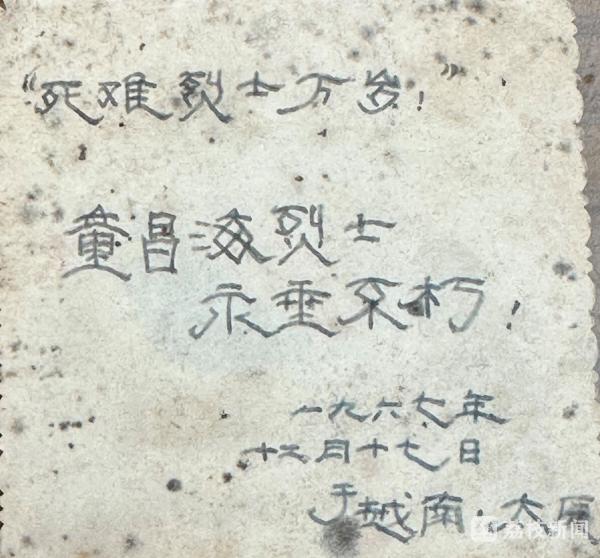 “死难烈士万岁！”
童昌海烈士
永垂不朽！
一九六七年
十二月十七日
于越南·太原
荔枝新闻